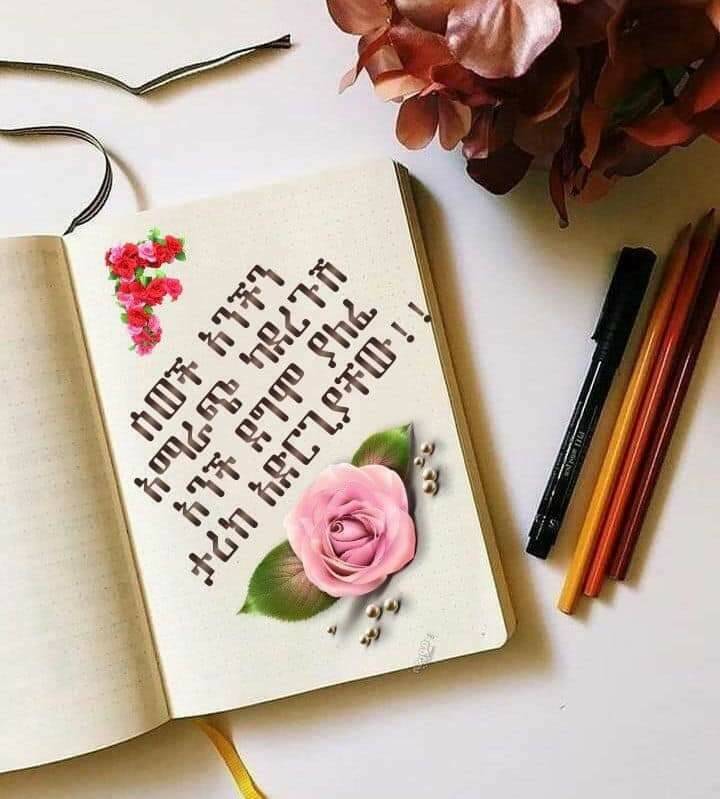 F
ሰወች አንችን
አማራጭ ካዳረጉሽ
አንች ደግሞ ያለፈ
ታሪክ አድርጊያቸው!!